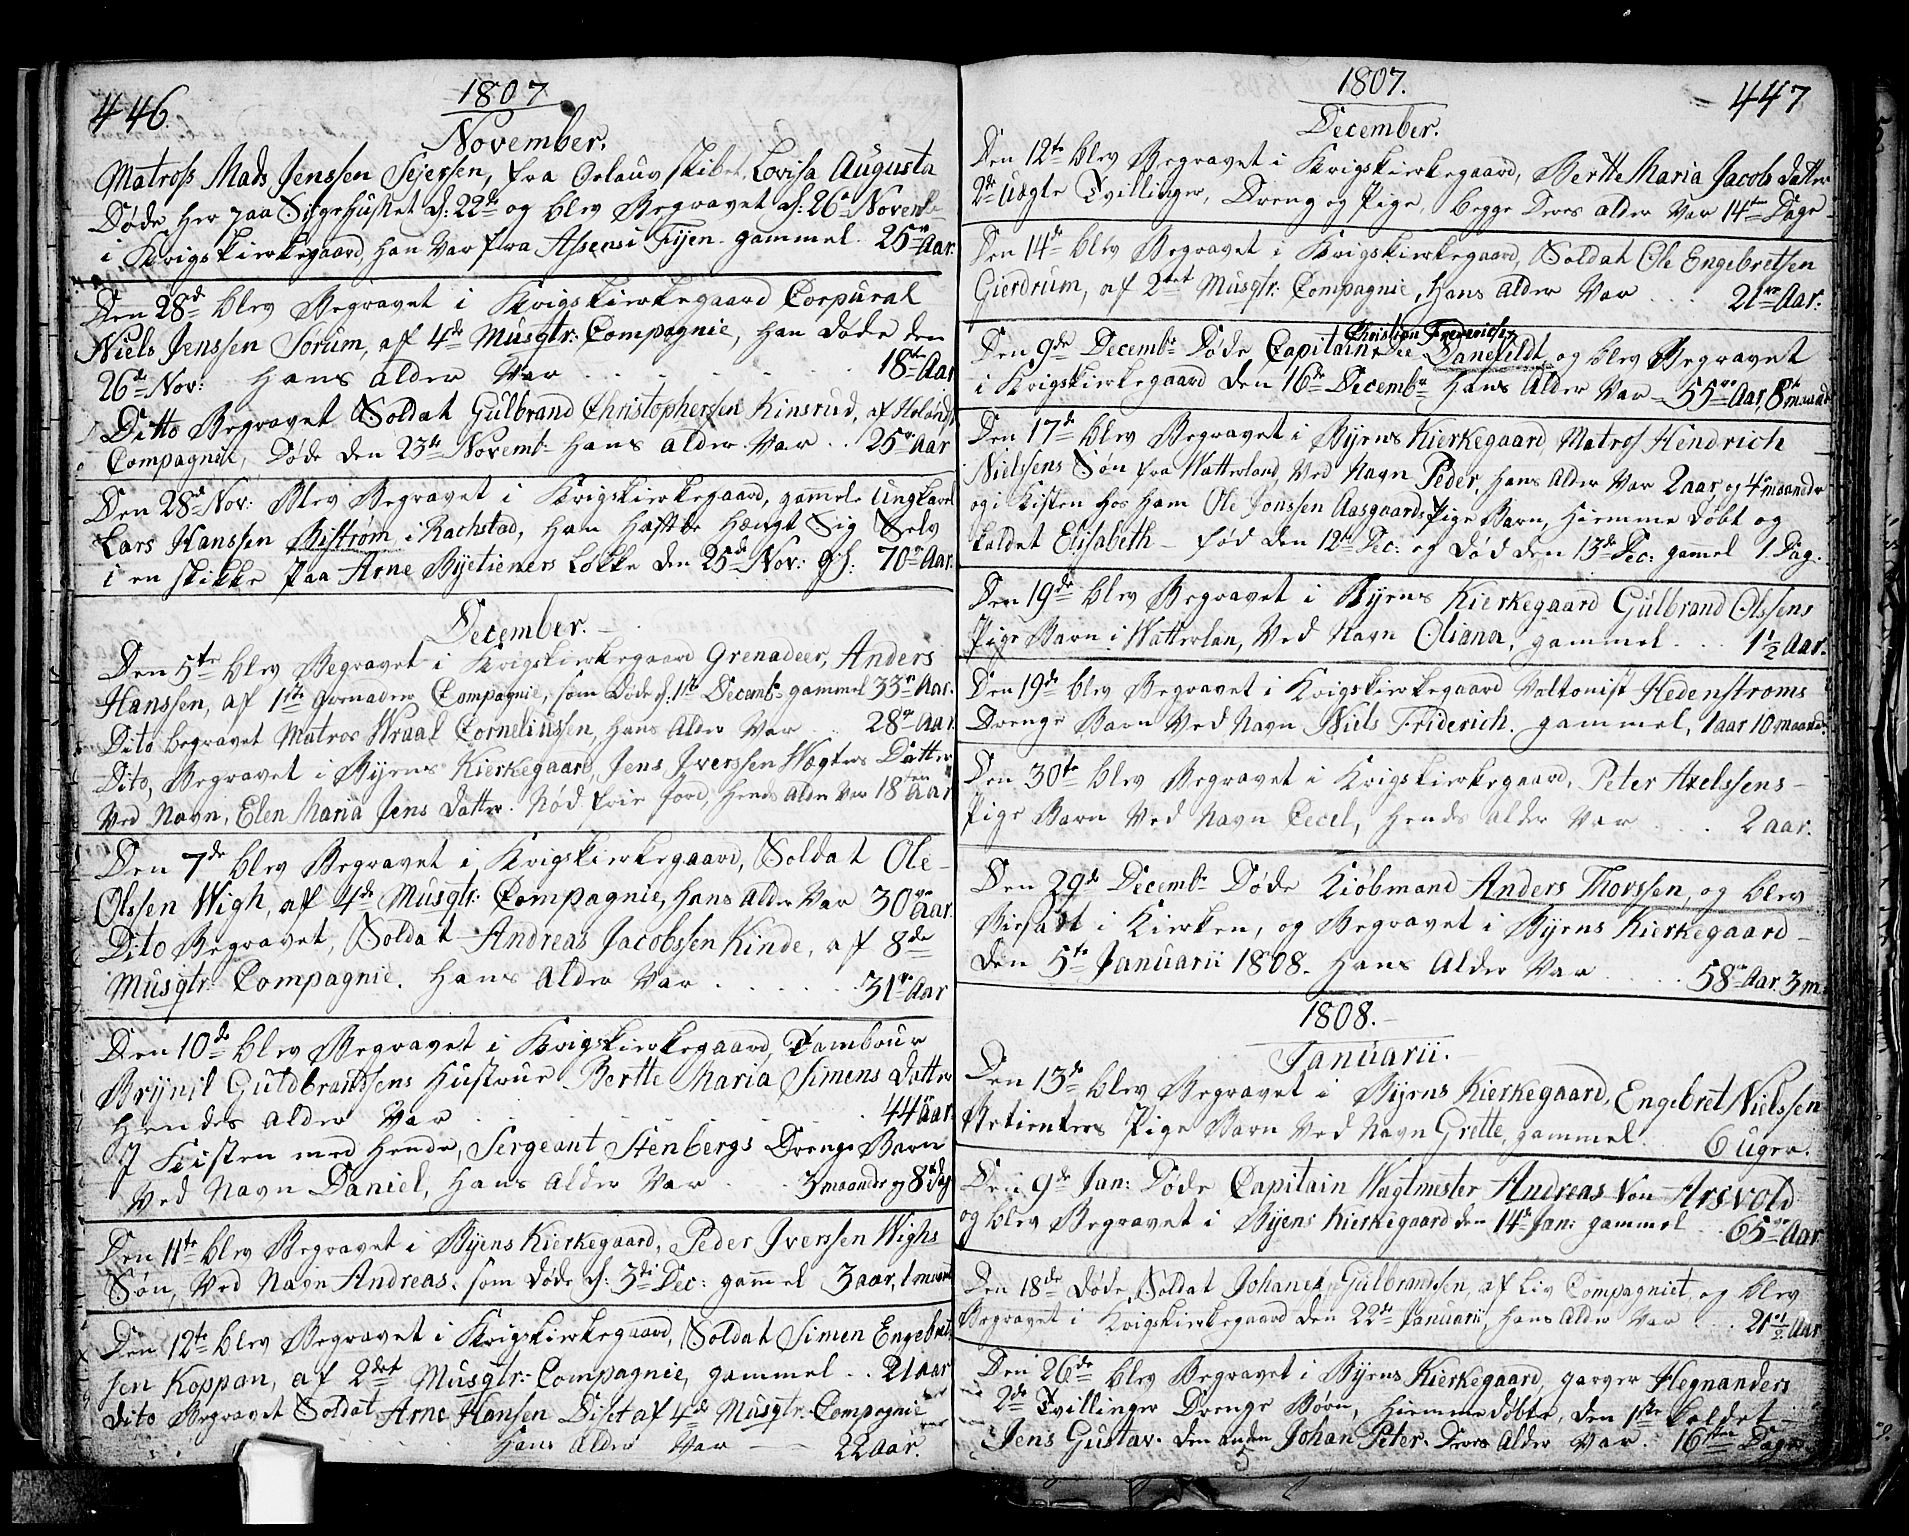 446.
1807
November.
Matross Mads Jenssen Sejersen, fra Orlauvskibet Lovisa Augusta
Døde her paa Sÿgehusset d: 22de og blev Begravet d: 26de Novemb
i Krigskirkegaard, han var fra Assens i Fÿen. gammel. 25 Aar.
Den 28de blev Begravet i Krigskierkegaard Corpural
Niels Jenssen Sorum, af 4de Musqtr: Compagnie, han døde den
26de Nov: hans alder var . . . 18ten Aar
Ditto Begravet Soldat Gulbrand Christophersen Kinsrud, af Holands
Compagnie, Døde den 23de Novemb hans alder var . . 25 Aar
Den 28de Nov: Blev Begravet i Krigskierkegaard, gamele Ungkarel
Lars Hanssen Biström i Rachstad, han hafde hængt Sig Selv
i en skikke paa Arne Bÿetieners Løkke den 25de Nov: gl: 70 Aar.
December.
Den 5te blev Begravet i Krigskierkegaard Grenadeer, Anders
Hanssen, af 1ste Grenadeer Compagnie, som døde d: 1ste Decemb gammel 33 Aar.
Dito begravet Matros Wraal Corneliussen, hans Alder Var . . 28 Aar
Dito, Begravet i Bÿens Kierkegaard, Jens Iverssen Wægters Datter
Ved Navn, Elen Maria Jens datter. Nød. frie Jord, hends Alder Var 18ten Aar
Den 7de blev Begravet i Krigskierkegaard, Soldat Ole
Olssen Wigh, af 4de Musqtr: Compagnie, hans Alder Var 30 Aar.
Dito Begravet, Soldat Andreas Jacobssen Kinde, af 8de
Musqtr: Compagnie. hans Alder Var . . . . . 31 Aar
Den 10de blev Begravet i Krigskierkegaard, Tambour
Brÿnil Guldbrandsens Hustrue Bertte Maria Simens datter
hendes alder Var . . . 44 Aar
I Kisten med hende, Sergeant Stenbergs Drenge Barn
Ved Navn Daniel, hans Alder Var . . 3 maander og 8 dag
Den 11te blev Begravet i Bÿens Kierkegaard, Peder Iverssen Wighs
Søn, Ved Navn Andreas. som døde d: 3de Dec: gammel 3 aar, 1 maaned
Den 12te blev Begravet i Krigskierkegaard, Soldat Simen Engebret
sen Koppan, af 2det Musqtr: Compagnie, gammel . . 21 aar
dito Begravet Soldat Arne Hansen Diset af 4de Musqtr: Compagnie
Hans Alder Var 22 Aar.
447
1807.
December.
Den 12te blev Begravet i Krigskierkegaard, Bertte Maria Jacobs datter
2de Uægte Tvillinger, Dreng og Pige, begge Deres alder Var 14ten Dage
Den 14de blev Begravet i Krigskierkegaard, Soldat Ole Engebretsen
Gierdrum, af 2det Musqtr: Compagnie, hans alder Var . . . 21 Aar.
Christian Frederich
Den 9de Decemb Døde Capitain De Danefeldt og blev Begravet
i Krigskierkegaard den 16de Decembr hans Alder Var 55 Aar, 8te maaneder
Den 17de blev Begravet i Bÿens Kierkegaard, Matros Hendrich
Nielssens Søn fra Watterland, Ved Navn Peder, hans Alder Var 2 aar og 4 maaneder
og i Kisten hos ham Ole Jonssen Aasgaards Pige Barn, hiemme døbt og
kaldet Elisabeth – født den 12te Dec: og død den 13de Dec: gammel 1. Dag.
Den 19de blev Begravet i Bÿens Kierkegaard Gulbrand Olssens
Pige Barn i Watterlan, Ved Navn Oliana, gammel . . . 1½ Aar.
Den 19de blev Begravet i Krigskierkegaard Voltonist Hedenstroms
Drenge Barn Ved Navn Niels Friderich. gammel, 1 aar 10 maaneder
Den 30te blev Begravet i Krigskierkegaard, Peter Axelssens
Pige Barn Ved Navn Cecel, hends alder Var . . . 2 aar.
Den 29de Decemb Døde Kiøbmand Anders Thorssen, og blev
Biesatt i Kierken, og Begravet i Bÿens Kierkegaard
Den 5te Januarii 1808. hans Alder Var . . . . 58 Aar. 3 m.
1808.
Januarii.
Den 13de blev Begravet i Bÿens Kierkegaard, Engebret Nielssen
Betientes Pige Barn Ved Navn Grette, gammel . 6 uger.
Den 9de Jan: Døde Capitain Wagtmester Andreas Von Arsvold
og blev Begravet i Bÿens Kierkegaard den 14de Jan: gammel 65 Aar
Den 18de døde Soldat Johanes Gulbrandsen, af Liv Compagniet, og blev
Begravet i Krigskierkegaard den 22de Januarii, hans Alder Var . . . 21½ Aar
Den 26de blev Begravet i Bÿens Kierkegaard, garver Hegnanders
2de Tvillinger Drenge Børn, hiemmedøbte, den 1ste kaldet
Jens Gustav. den anden Johan Peter. Deres Alder Var. 16sten Dage